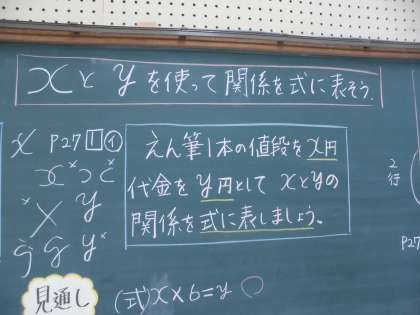 xとyを使って関係を式に表そう.
P27 1 イ
えん筆1本の値段をx円
代金をy円として xとyの
関係を式に表しましょう。
x y
y
見通し
(式) x×6=y
2
行
P27